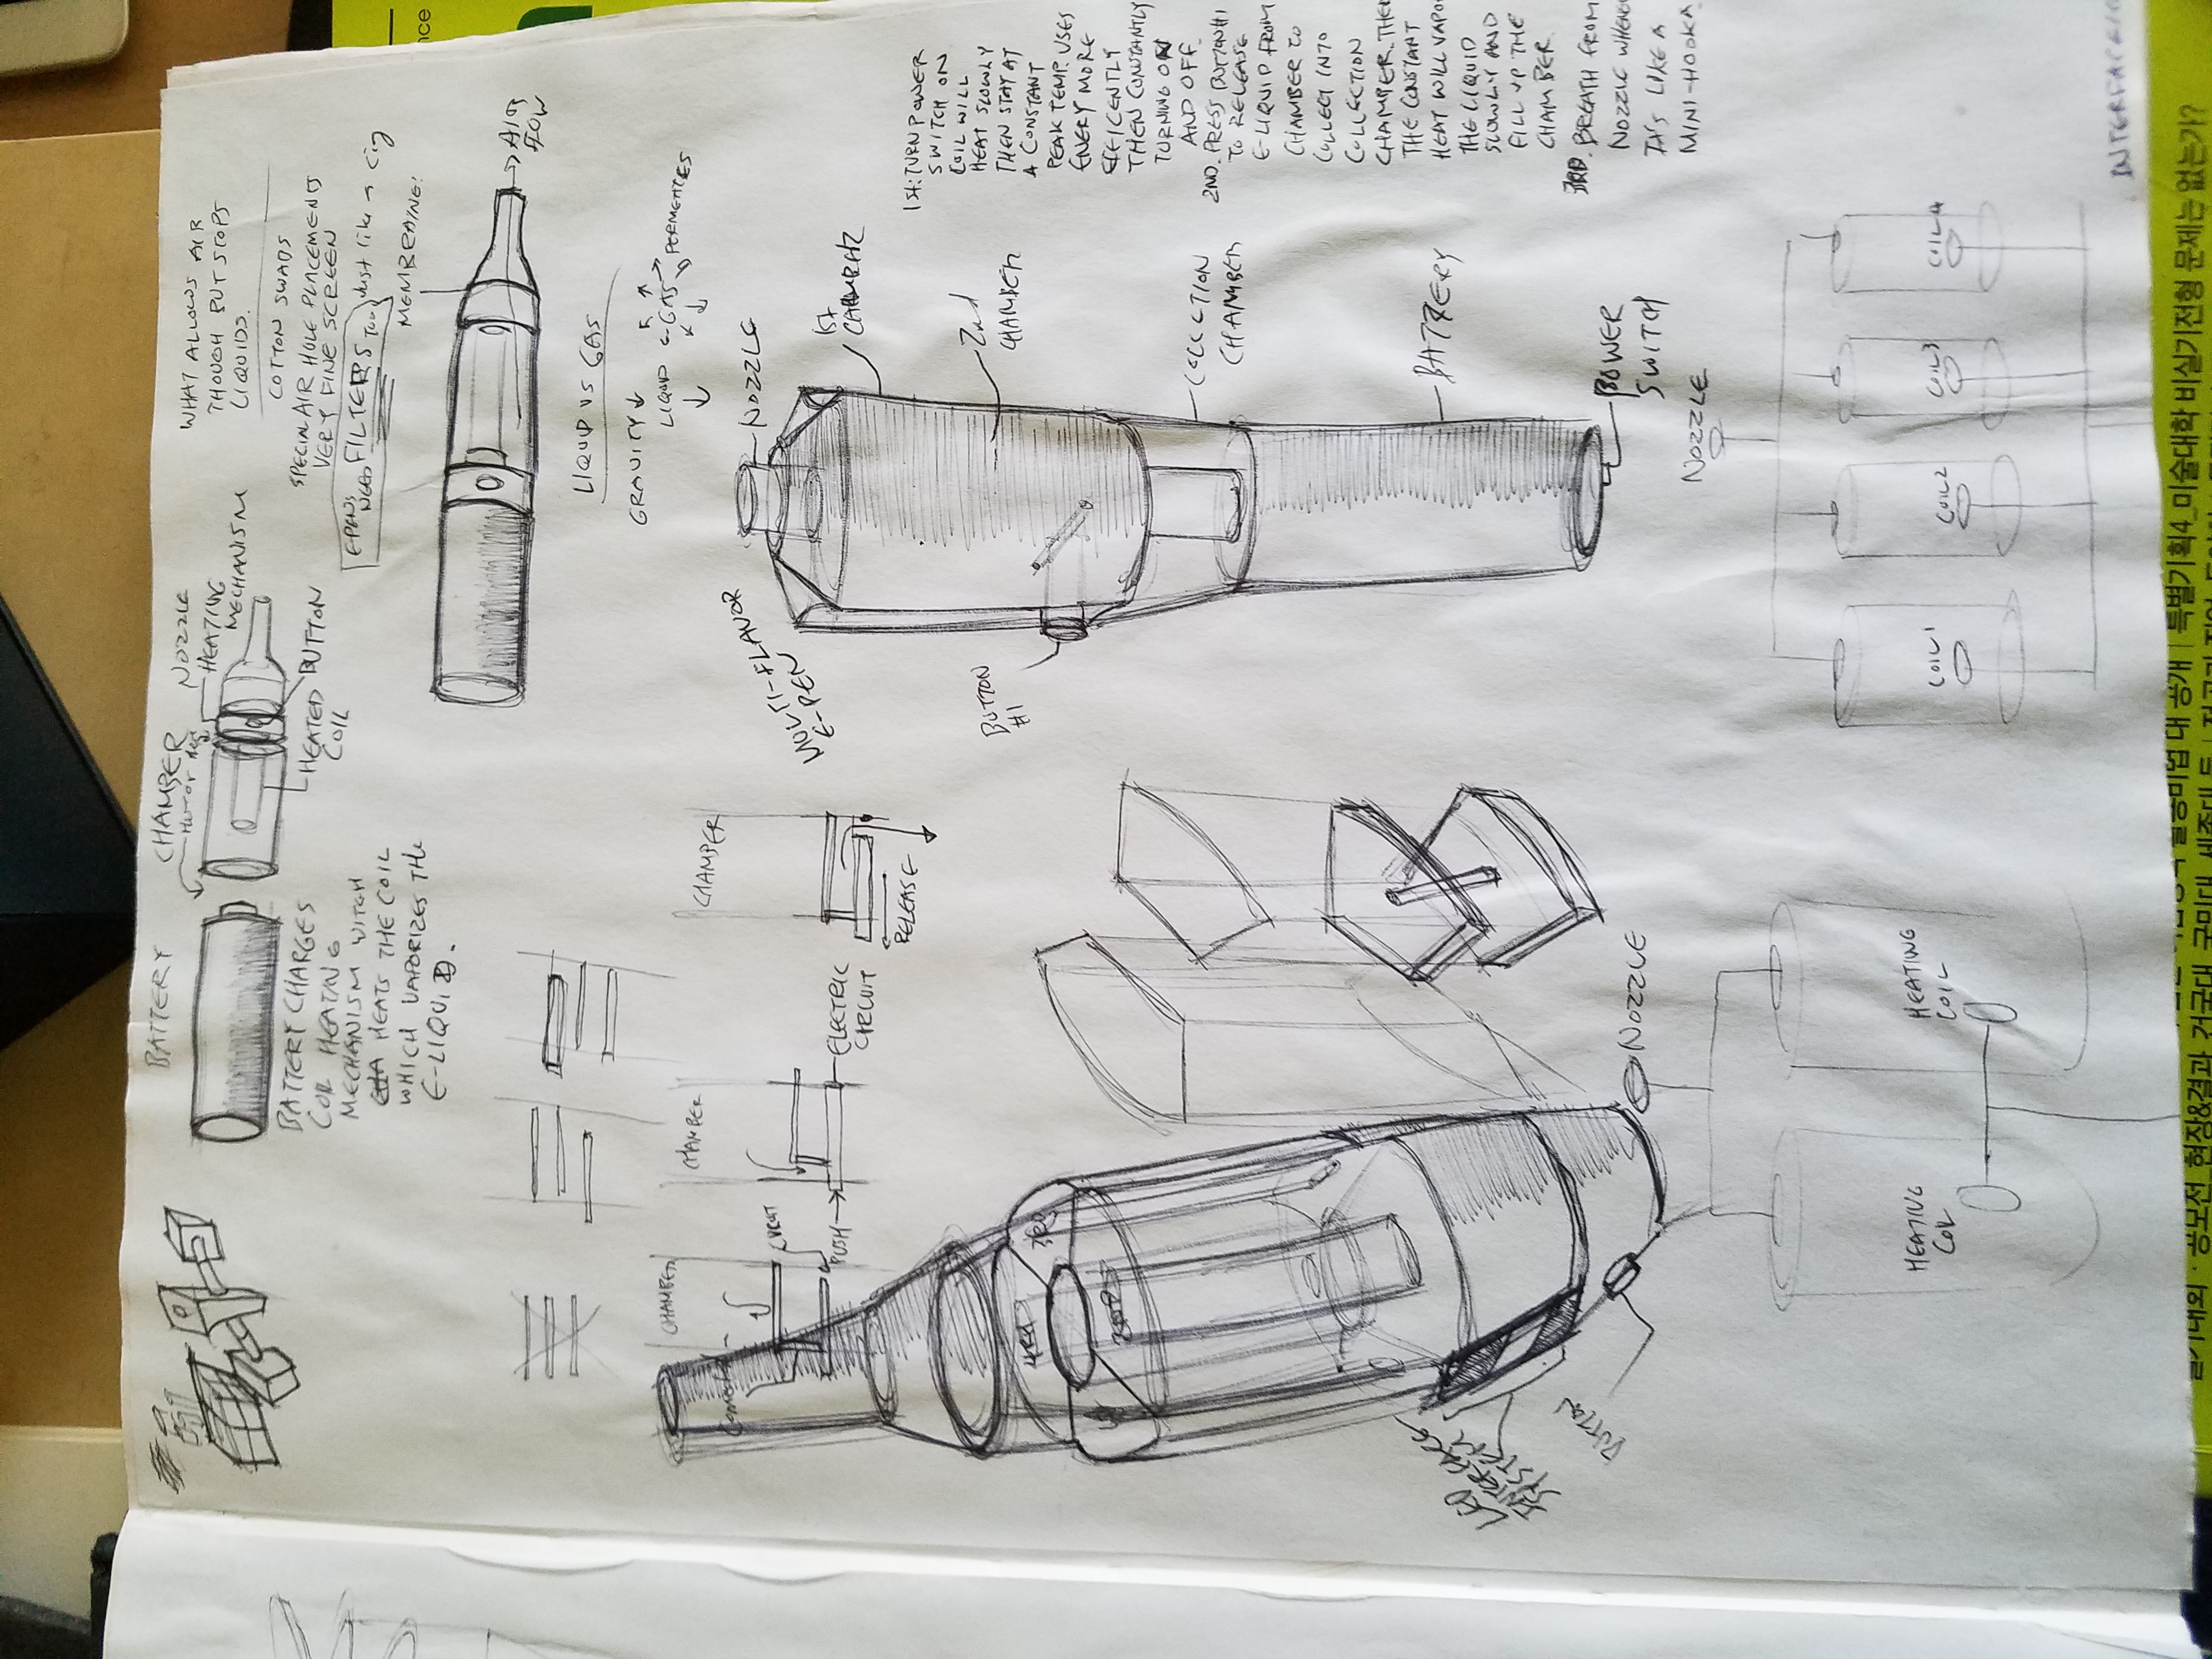 BATTERY
BATTERY CHARGES
COIL HEATING
MECHANISM WITCH
HEATS THE COIL
WHICH VAPORIZES THE
E-LIQUID.
CHAMBER
NOZZLE
HEATING
MECHANISM
HEATED
COIL
BUTTON
WHAT ALLOWS AIR
THOUGH BUT STOPS
LIQUIDS.
COTTON SWABS
SPECIAL AIR HOLE PLACEMENTS
VERY FINE SCREEN
EPENS NEED FILTERS TOO Just like a cig
MEMBRAINE!
AIR
FLOW
LIQUID VS GAS
GRAVITY
LIQUID
GAS
PERMEATES
CHAMBER
CIRCUIT
CHAMBER
PUSH
ELECTRIC
CIRCUIT
CHAMBER
RELEASE
MULTI-FLAVOR
E-PEN
NOZZLE
1st
CHAMBER
2nd
CHAMBER
BUTTON
#1
COLLCTION
CHAMBER
BATTERY
POWER
SWITCH
1St: TURN POWER
SWITCH ON
COIL WILL
HEAT SLOWLY
THEN STAY AT
A CONSTANT
PEAK TEMP. USES
ENERY MORE
EFFICENTLY
THEN CONSTANTLY
TURNING ON
AND OFF.
2ND. PRESS BUTTON #1
TO RELEASE
E-LIQUID FROM
CHAMBER TO
COLLECT INTO
COLLECTION
CHAMBER. THE
THE CONSTANT
HEAT WILL VAPO
THE LIQUID
SLOWLY AND
FILL UP THE
CHAMBER
3RD. BREATH FROM
NOZZLE WHENE
IT'S LIKE A
MINI-HOOKA
4RH
3RD
2ND
LED
INTERFACE
SYSTEM
BUTTON
NOZZLE
HEATING
COIL
HEATING
COIL
NOZZLE
COIL 1
COIL 2
COIL 3
COIL 4
대 공개 | 특별기획4_미술대학 비실기전형 문제는 없는가?
실기대회 · 공모전 현장&결과 건국대 국민대 세종대 등